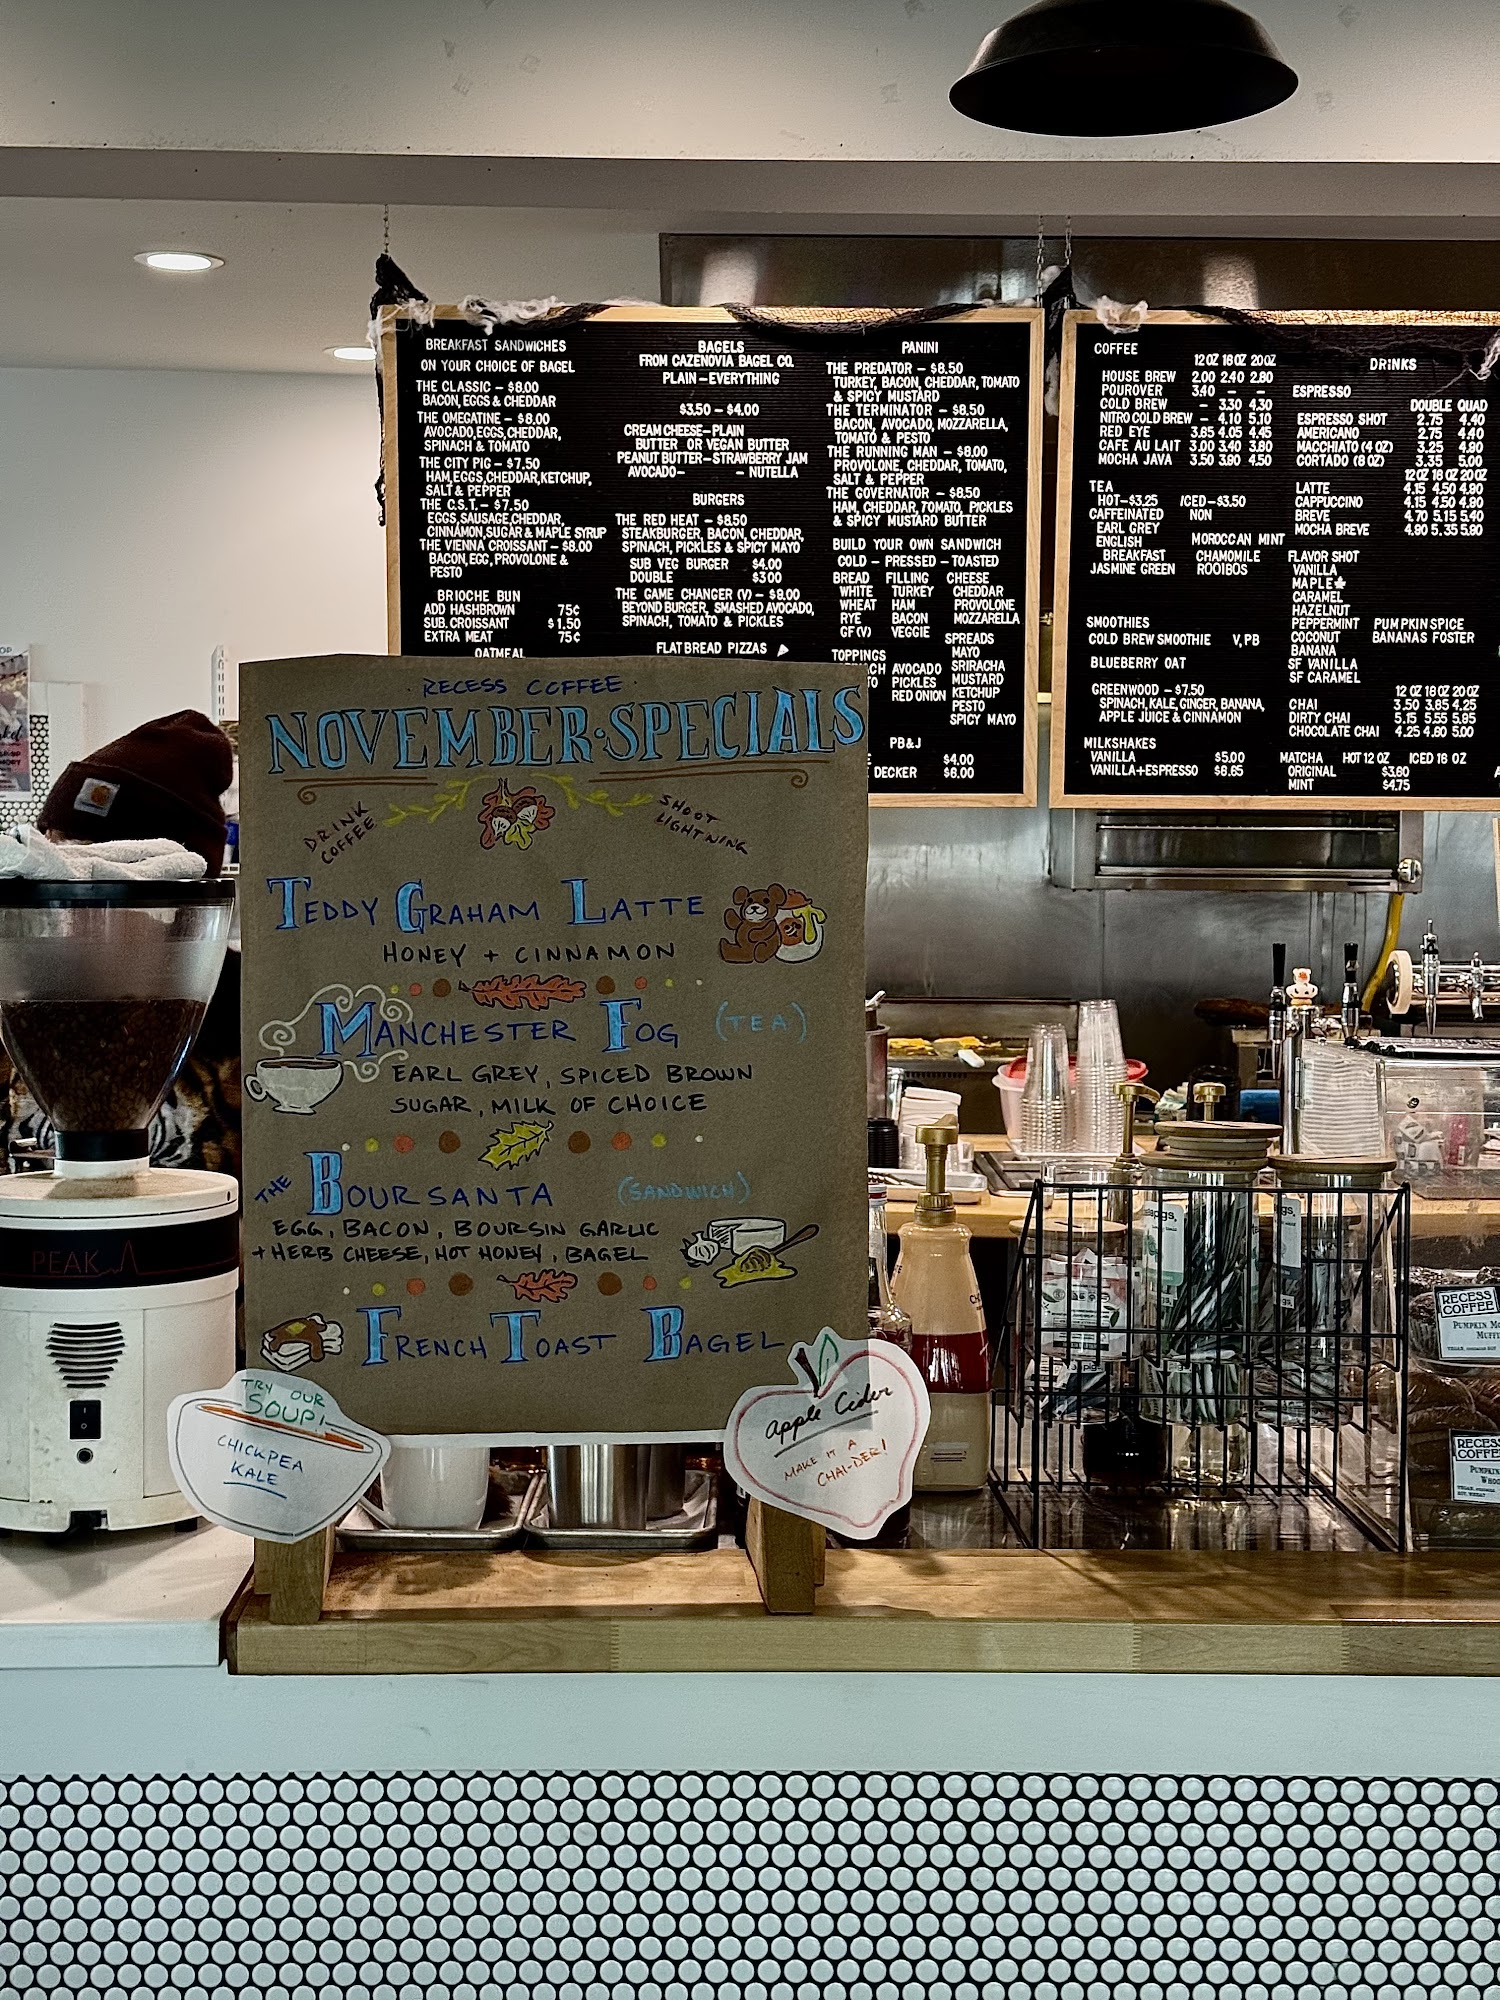 BREAKFAST SANDWICHES
ON YOUR CHOICE OF BAGEL
THE CLASSIC – $8.00
BACON, EGGS & CHEDDAR
THE OMEGATINE – $8.00
AVOCADO, EGGS, CHEDDAR,
SPINACH & TOMATO
THE CITY PIG – $7.50
HAM, EGGS, CHEDDAR, KETCHUP,
SALT & PEPPER
THE C.S.T. – $7.50
EGGS, SAUSAGE, CHEDDAR,
CINNAMON, SUGAR & MAPLE SYRUP
THE VIENNA CROISSANT – $8.00
BACON, EGG, PROVOLONE &
PESTO
BRIOCHE BUN
ADD HASHBROWN 75¢
SUB. CROISSANT $1.50
EXTRA MEAT 75¢
OATMEAL
BAGELS
FROM CAZENOVIA BAGEL CO.
PLAIN – EVERYTHING
$3.50 – $4.00
CREAM CHEESE – PLAIN
BUTTER OR VEGAN BUTTER
PEANUT BUTTER – STRAWBERRY JAM
AVOCADO – – NUTELLA
BURGERS
THE RED HEAT – $8.50
STEAKBURGER, BACON, CHEDDAR,
SPINACH, PICKLES & SPICY MAYO
SUB VEG BURGER $4.00
DOUBLE $3.00
THE GAME CHANGER (V) – $9.00
BEYOND BURGER, SMASHED AVOCADO,
SPINACH, TOMATO & PICKLES
FLATBREAD PIZZAS
PANINI
THE PREDATOR – $8.50
TURKEY, BACON, CHEDDAR, TOMATO
& SPICY MUSTARD
THE TERMINATOR – $8.50
BACON, AVOCADO, MOZZARELLA,
TOMATO & PESTO
THE RUNNING MAN – $8.00
PROVOLONE, CHEDDAR, TOMATO,
SALT & PEPPER
THE GOVERNATOR – $8.50
HAM, CHEDDAR, TOMATO, PICKLES
& SPICY MUSTARD BUTTER
BUILD YOUR OWN SANDWICH
COLD – PRESSED – TOASTED
BREAD FILLING CHEESE
WHITE TURKEY CHEDDAR
WHEAT HAM PROVOLONE
RYE BACON MOZZARELLA
GF (V) VEGGIE
SPREADS
TOPPINGS MAYO
AVOCADO SRIRACHA
PICKLES MUSTARD
RED ONION KETCHUP
PESTO
SPICY MAYO
PB & J
$4.00
DECKER $6.00
COFFEE
12 OZ 16 OZ 20 OZ
HOUSE BREW 2.00 2.40 2.80
POUROVER 3.40 – –
COLD BREW – 3.30 4.30
NITRO COLD BREW – 4.10 5.10
RED EYE 3.65 4.05 4.45
CAFE AU LAIT 3.00 3.40 3.80
MOCHA JAVA 3.50 3.90 4.50
TEA
HOT – $3.25 ICED – $3.50
CAFFEINATED NON
EARL GREY
ENGLISH MOROCCAN MINT
BREAKFAST CHAMOMILE
JASMINE GREEN ROOIBOS
SMOOTHIES
COLD BREW SMOOTHIE V, PB
BLUEBERRY OAT
GREENWOOD – $7.50
SPINACH, KALE, GINGER, BANANA,
APPLE JUICE & CINNAMON
MILKSHAKES
VANILLA $5.00
VANILLA + ESPRESSO $6.65
DRINKS
ESPRESSO
DOUBLE QUAD
ESPRESSO SHOT 2.75 4.40
AMERICANO 2.75 4.40
MACCHIATO (4 OZ) 3.25 4.80
CORTADO (6 OZ) 3.35 5.00
12 OZ 16 OZ 20 OZ
LATTE 4.15 4.50 4.80
CAPPUCCINO 4.15 4.50 4.80
BREVE 4.70 5.15 5.40
MOCHA BREVE 4.90 5.35 5.80
FLAVOR SHOT
VANILLA
MAPLE
CARAMEL
HAZELNUT
PEPPERMINT PUMPKIN SPICE
COCONUT BANANAS FOSTER
BANANA
SF VANILLA
SF CARAMEL
12 OZ 16 OZ 20 OZ
CHAI 3.50 3.85 4.25
DIRTY CHAI 5.15 5.55 5.95
CHOCOLATE CHAI 4.25 4.60 5.00
MATCHA HOT 12 OZ ICED 16 OZ
ORIGINAL $3.60
MINT $4.75
RECESS COFFEE
NOVEMBER · SPECIALS
DRINK COFFEE
SHOOT LIGHTNING
TEDDY GRAHAM LATTE
HONEY + CINNAMON
MANCHESTER FOG (TEA)
EARL GREY, SPICED BROWN
SUGAR, MILK OF CHOICE
THE BOURSANTA (SANDWICH)
EGG, BACON, BOURSIN GARLIC
+ HERB CHEESE, HOT HONEY, BAGEL
FRENCH TOAST BAGEL
TRY OUR
SOUP!
CHICKPEA
KALE
Apple Cider
MAKE IT A
CHAI-DER!
PEAK
RECESS
COFFEE
PUMPKIN
RECESS
PUMPKIN